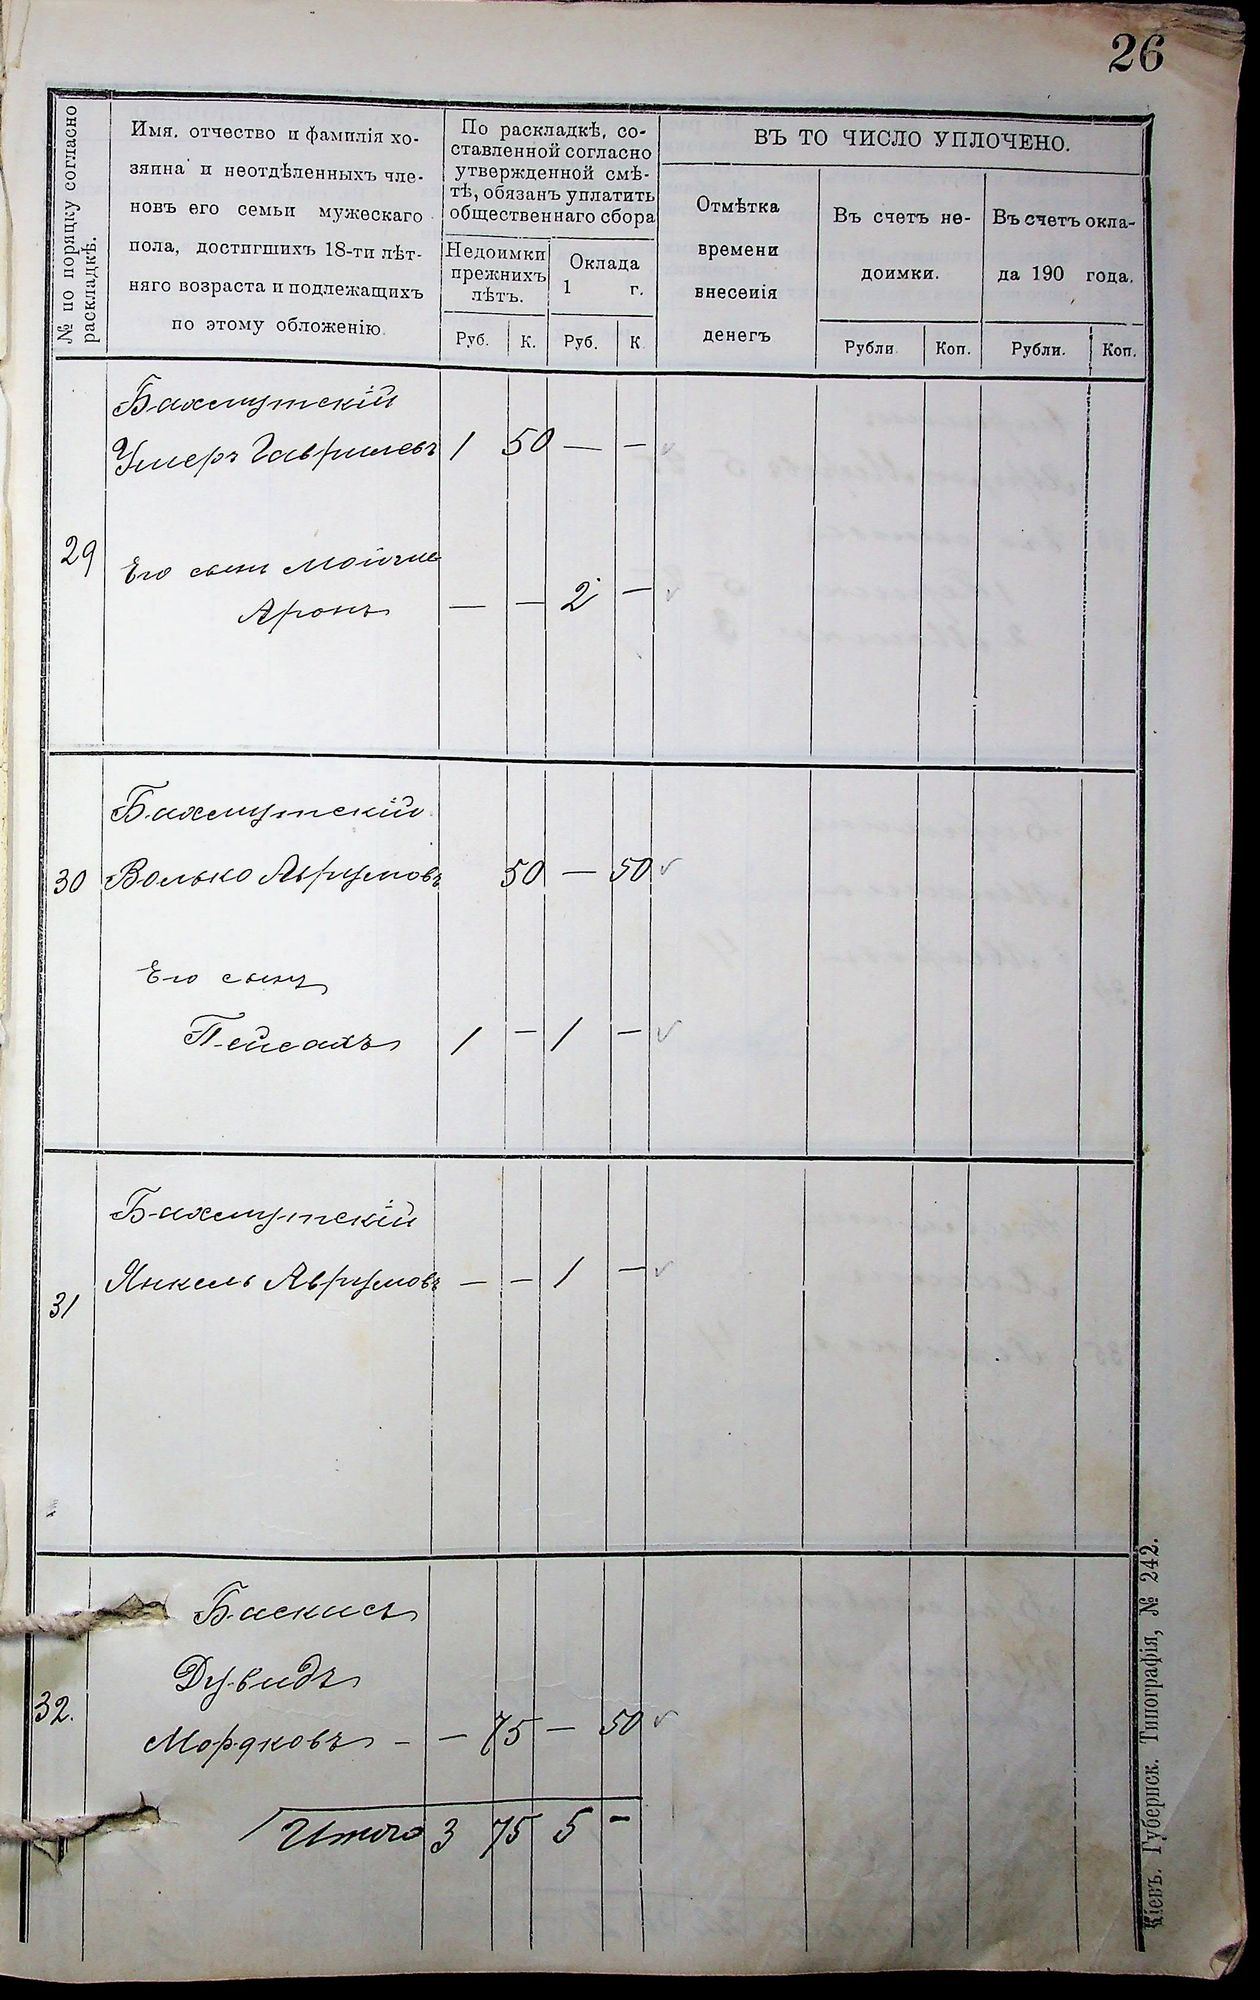 26
№ по поряцку согласно
раскладкѣ.
Имя, отчество и фамилія хо-
зяина и неотдѣленныхъ чле-
новъ его семьи мужескаго
пола, достигшихъ 18-ти лѣт-
няго возраста и подлежащихъ
по этому обложенію.
По раскладкѣ, со-
ставленной согласно
утвержденной смѣ-
тѣ, обязанъ уплатить
общественнаго сбора
Недоимки
прежнихъ
лѣтъ.
Оклада
1 г.
Руб. К. Руб. К
ВЪ ТО ЧИСЛО УПЛОЧЕНО.
Отмѣтка
времени
внесенія
денегъ
Въ счетъ не-
доимки.
Въ счетъ окла-
да 190 года.
Рубли Коп. Рубли. Коп.
Бахмутскій
Умеръ Гаврилевъ 1 50 — —
29
Его сынъ
Аронъ — — 2 —
Бахмутскій
30 Волько Аврумовъ 50 — 50
Его сынъ
Пейсахъ 1 — 1 —
Бахмутскій
Янкель Аврумовъ — — 1 —
31
Баскисъ
Дувидъ
32.
Мордковъ - — 75 — 50
Итого 3 75 5 —
Кіевъ. Губернск. Типографія, № 242.